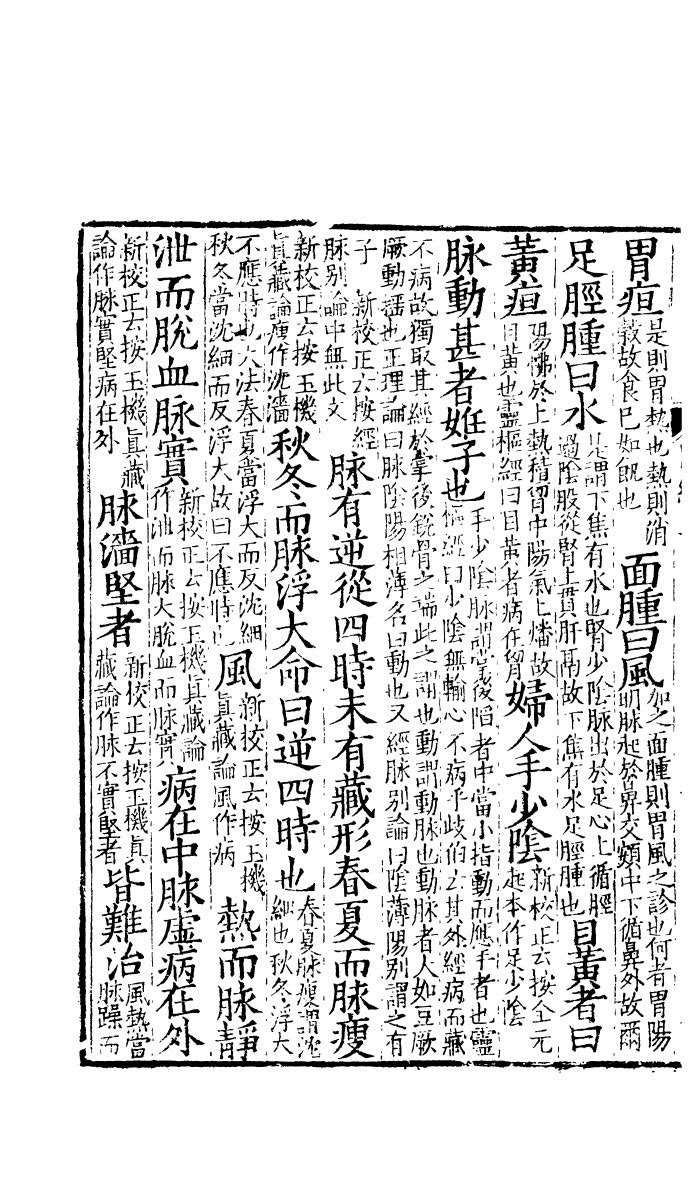 胃疸是則胃熱也熱則消穀故食已如飢也面腫曰風加之面腫則胃風之診也何者胃陽明脉起於鼻交頞中下循鼻外故爾
足脛腫曰水是謂下焦有水也腎少陰脉出於足心上循脛過陰股從腎上貫肝鬲故下焦有水足脛腫也目黃者曰
黃疸陽怫於上熱積胷中陽氣上燔故目黃也靈樞經曰目黃者病在胷婦人手少陰新校正云按全元起本作足少陰
脉動甚者姙子也手少陰脉謂掌後陷者中當小指動而應手者也靈樞經曰少陰無輸心不病乎歧伯云其外經病而藏
不病故獨取其經於掌後銳骨之端此之謂也動謂動脉也動脉者大如豆厥厥動搖也正理論曰脉陰陽相薄名曰動也又經脉別論曰陰薄陽別謂之有
子 新校正云按經脉別論中無此文脉有逆從四時未有藏形春夏而脉瘦
新校正云按玉機真藏論瘦作沈濇秋冬而脉浮大命曰逆四時也春夏脉瘦謂沈細也秋冬浮大
不應時也大法春夏當浮大而反沈細秋冬當沈細而反浮大故曰不應時也風新校正云按玉機真藏論風作病熱而脉靜
泄而脫血脉實新校正云按玉機真藏論作泄而脉大脫血而脉實病在中脉虛病在外
新校正云按玉機真藏論作脉實堅病在外脉濇堅者新校正云按玉機真藏論作脉不實堅者皆難治風熱當脉躁而